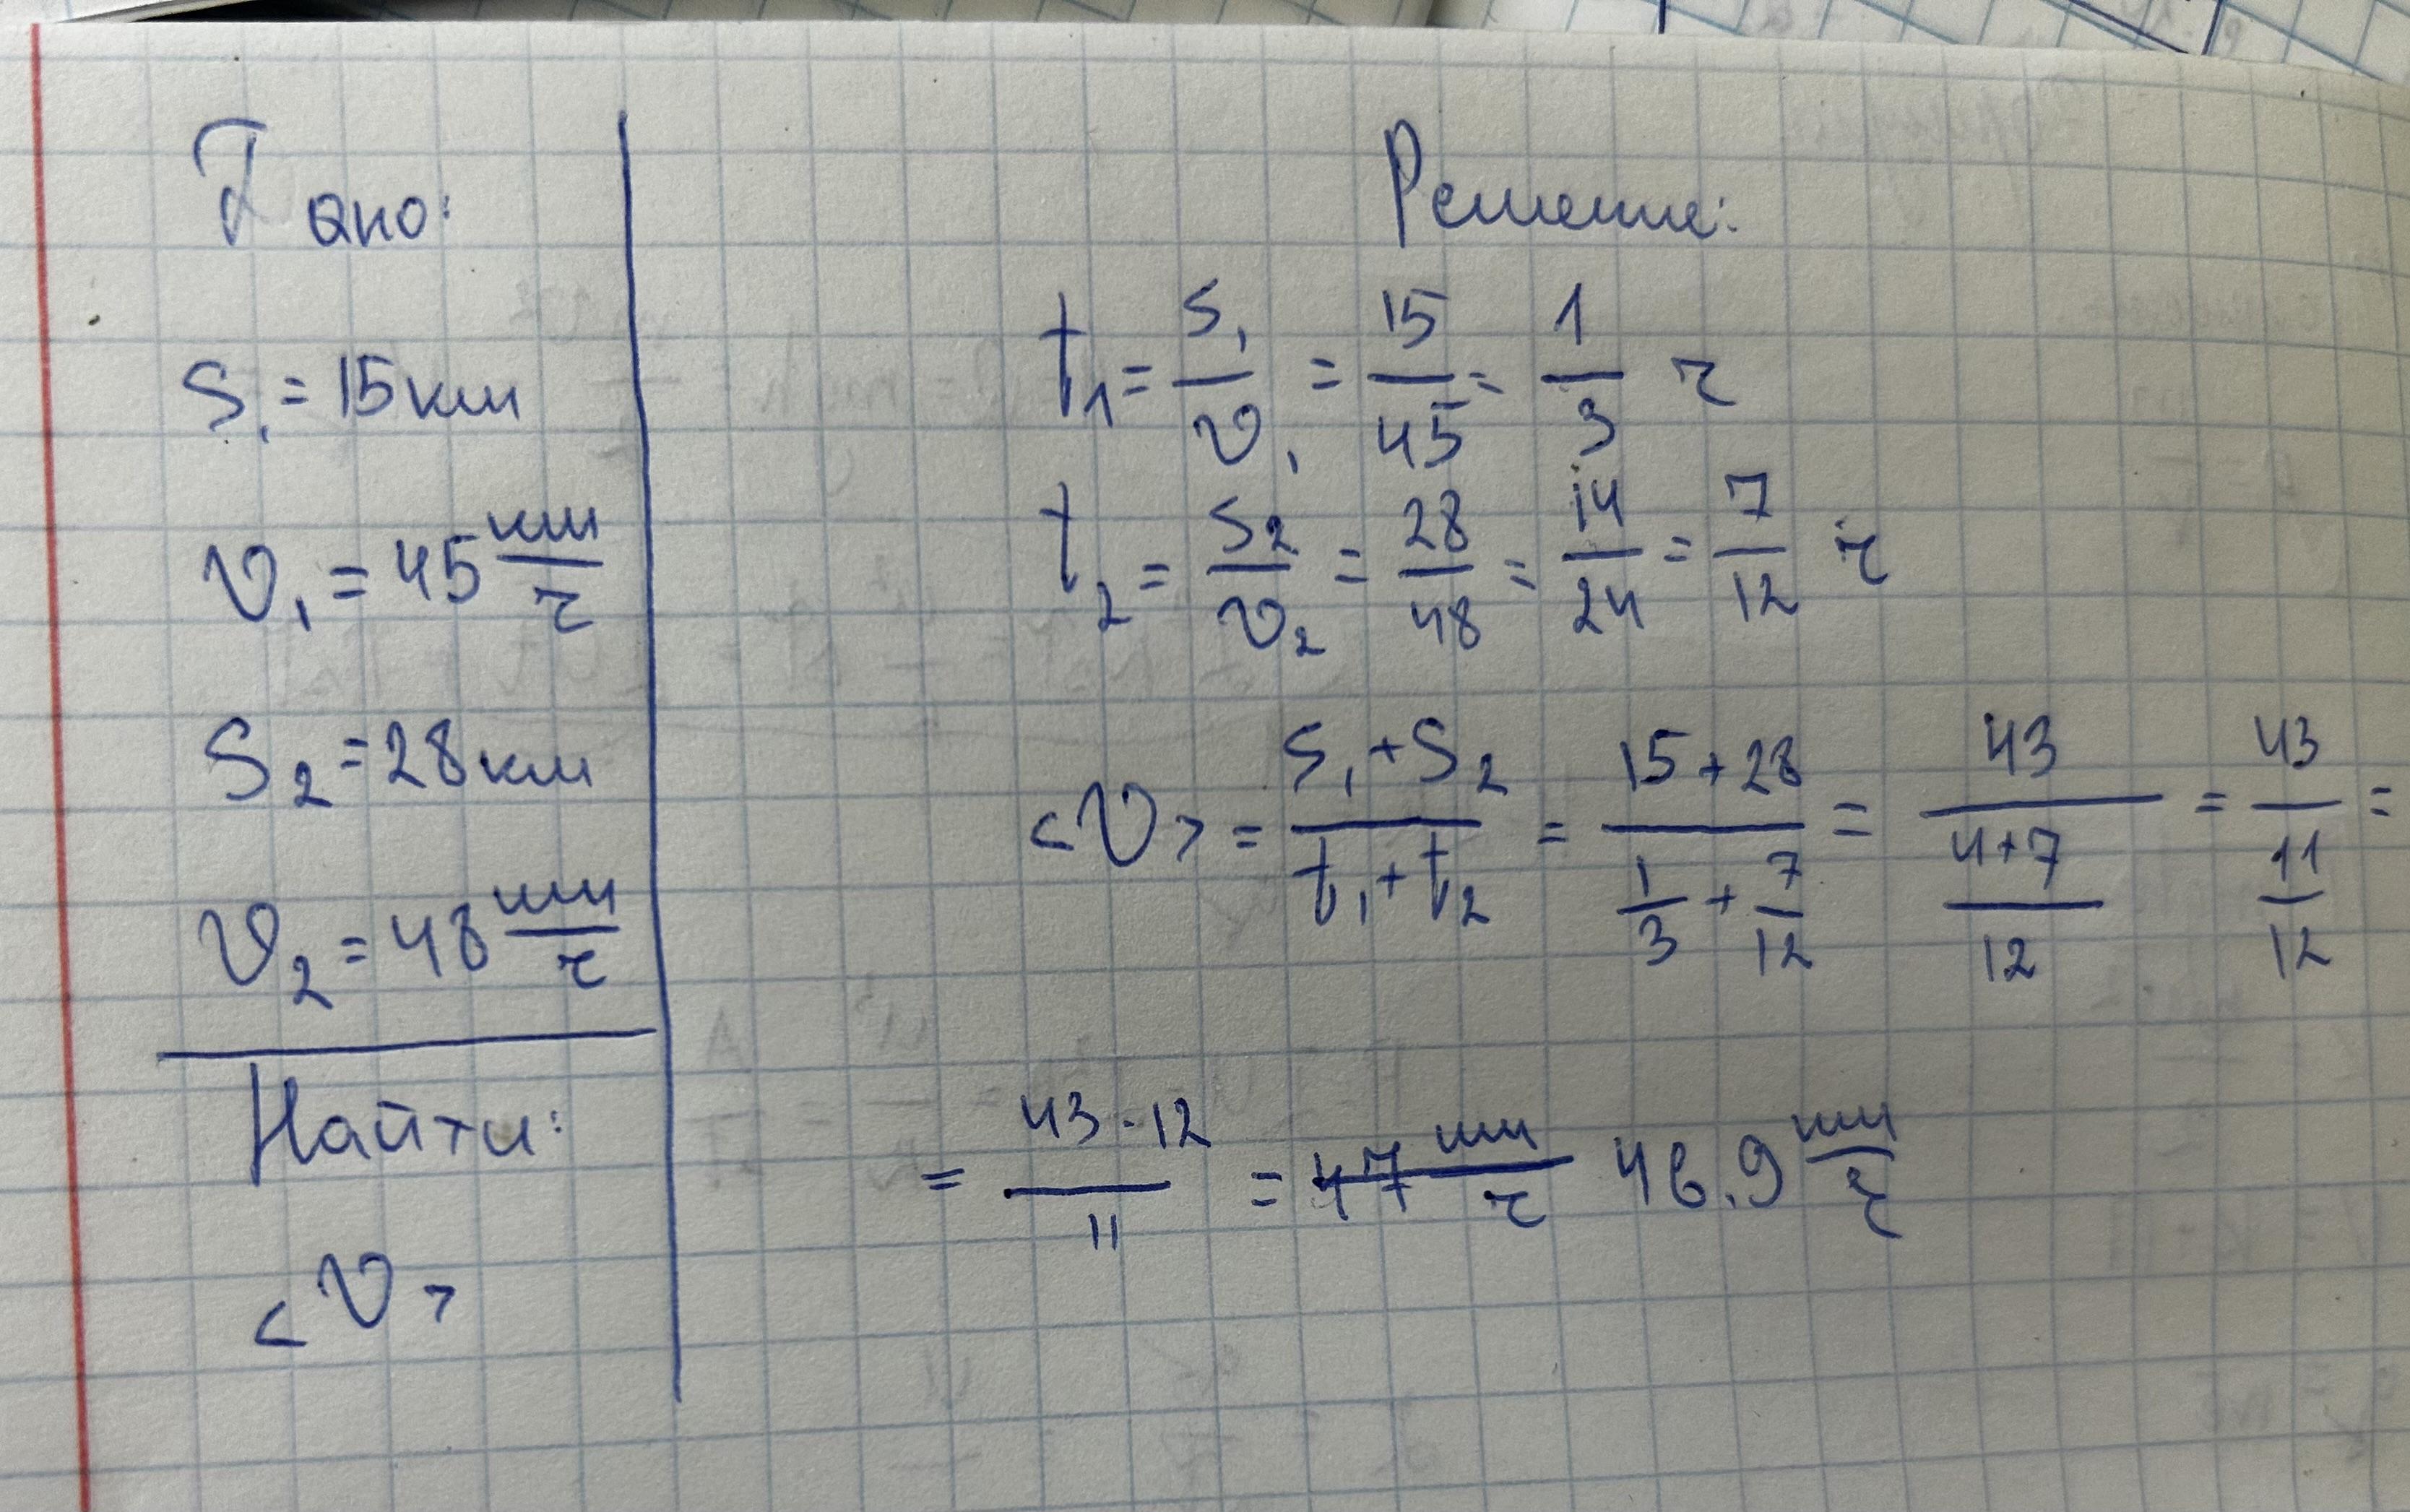 Дано:
S₁ = 15 км
υ₁ = 45 км/ч
S₂ = 28 км
υ₂ = 48 км/ч
Найти:
<υ>
Решение:
t₁ = S₁/υ₁ = 15/45 = 1/3 ч
t₂ = S₂/υ₂ = 28/48 = 14/24 = 7/12 ч
<υ> = (S₁+S₂)/(t₁+t₂) = (15+28)/(1/3 + 7/12) = 43/((4+7)/12) = 43/(11/12) =
= (43·12)/11 = ~~47 км/ч~~ 46.9 км/ч